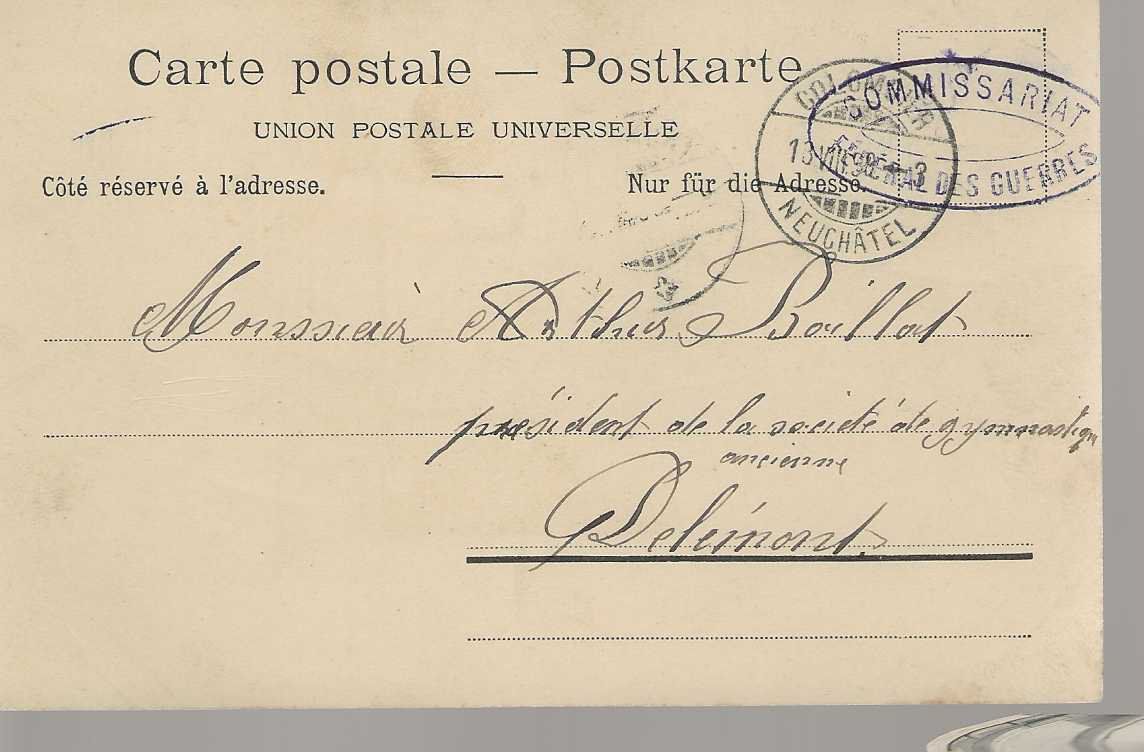 Carte postale — Postkarte
UNION POSTALE UNIVERSELLE
Côté réservé à l'adresse.
Nur für die Adresse.
COLOMBIER
NEUCHÂTEL
COMMISSARIAT
FÉDÉRAL DES GUERRES
Monssieur Arthur Boillat
président de la société de gymnastique
ancienne
Delémont.